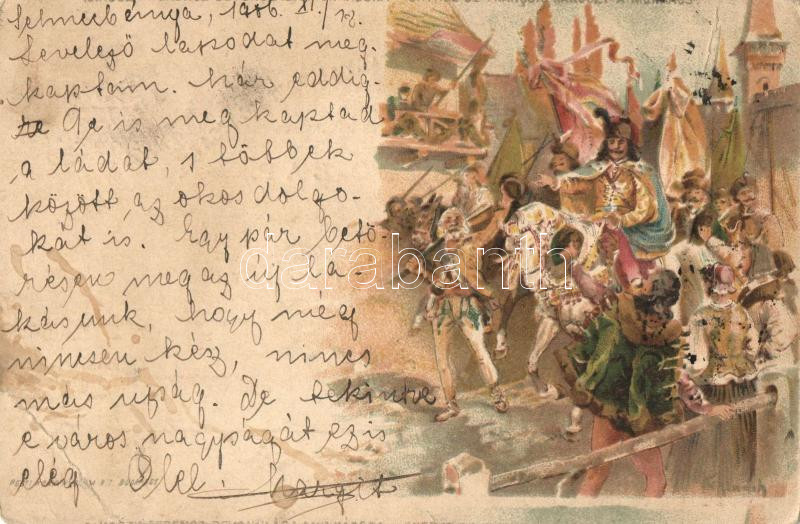 Selmecbánya, 1906. XI./12.
Levelező lapodat meg-
kaptam. Már eddig-
re Te is meg kaptad
a ládát, s többek
között az okos dolgo-
kat is. Egy pár betö-
résen meg az új la-
kásunk, hogy még
nincsen kész, nincs
más ujság. De tekintve
e város nagyságát ez is
elég Ölel
Margit
darabanth